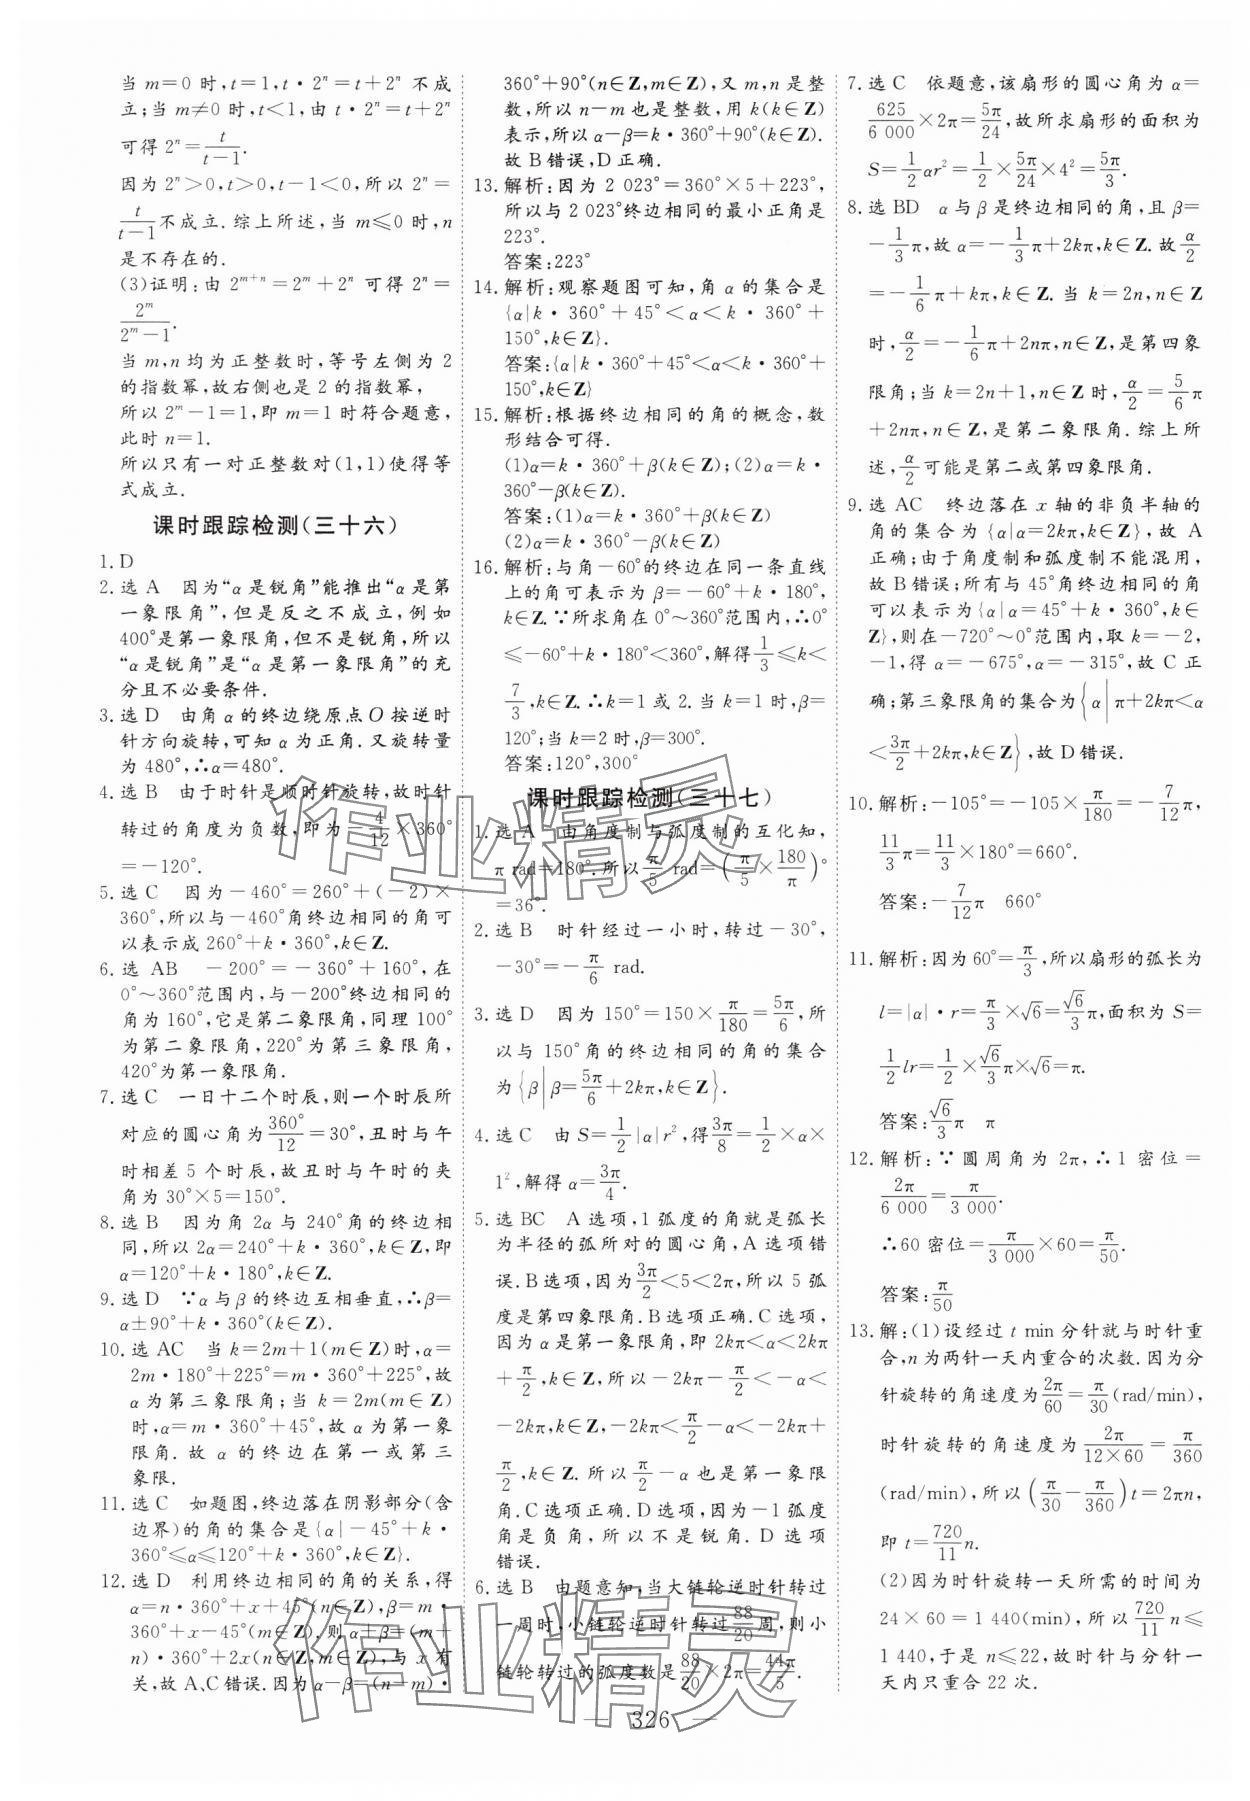 当 m=0 时,t=1,t·2ⁿ=t+2ⁿ 不成
立;当 m≠0 时,t<1,由 t·2ⁿ=t+2ⁿ
可得 2ⁿ=t/(t-1).
因为 2ⁿ>0,t>0,t-1<0,所以 2ⁿ=
t/(t-1)不成立.综上所述,当 m≤0 时,n
是不存在的.
(3)证明:由 2ᵐ⁺ⁿ=2ᵐ+2ⁿ 可得 2ⁿ=
2ᵐ/(2ᵐ-1).
当 m,n 均为正整数时,等号左侧为 2
的指数幂,故右侧也是 2 的指数幂,
所以 2ᵐ-1=1,即 m=1 时符合题意,
此时 n=1.
所以只有一对正整数对(1,1)使得等
式成立.
课时跟踪检测(三十六)
1.D
2.选 A 因为“α是锐角”能推出“α是第
一象限角”,但是反之不成立,例如
400°是第一象限角,但不是锐角,所以
“α是锐角”是“α是第一象限角”的充
分且不必要条件.
3.选 D 由角 α 的终边绕原点 O 按逆时
针方向旋转,可知 α 为正角.又旋转量
为 480°,∴α=480°.
4.选 B 由于时针是顺时针旋转,故时针
转过的角度为负数,即为-4/12×360°
=-120°.
5.选 C 因为-460°=260°+(-2)×
360°,所以与-460°角终边相同的角可
以表示成 260°+k·360°,k∈Z.
6.选 AB -200°=-360°+160°,在
0°~360°范围内,与-200°终边相同的
角为 160°,它是第二象限角,同理 100°
为第二象限角,220°为第三象限角,
420°为第一象限角.
7.选 C 一日十二个时辰,则一个时辰所
对应的圆心角为360°/12=30°,丑时与午
时相差 5 个时辰,故丑时与午时的夹
角为 30°×5=150°.
8.选 B 因为角 2α 与 240°角的终边相
同,所以 2α=240°+k·360°,k∈Z,即
α=120°+k·180°,k∈Z.
9.选 D ∵α与β的终边互相垂直,∴β=
α±90°+k·360°(k∈Z).
10.选 AC 当 k=2m+1(m∈Z)时,α=
2m·180°+225°=m·360°+225°,故
α 为第三象限角;当 k=2m(m∈Z)
时,α=m·360°+45°,故 α 为第一象
限角.故 α 的终边在第一或第三
象限.
11.选 C 如题图,终边落在阴影部分(含
边界)的角的集合是{α|-45°+k·
360°≤α≤120°+k·360°,k∈Z}.
12.选 D 利用终边相同的角的关系,得
α=n·360°+x+45°(n∈Z),β=m·
360°+x-45°(m∈Z),则 α+β=(m+
n)·360°+2x(n∈Z,m∈Z),与 x 有
关,故 A、C 错误.因为 α-β=(n-m)·
360°+90°(n∈Z,m∈Z),又 m,n 是整
数,所以 n-m 也是整数,用 k(k∈Z)
表示,所以 α-β=k·360°+90°(k∈Z).
故 B 错误,D 正确.
13.解析:因为 2 023°=360°×5+223°,
所以与 2 023°终边相同的最小正角是
223°.
答案:223°
14.解析:观察题图可知,角 α 的集合是
{α|k·360°+45°<α<k·360°+
150°,k∈Z}.
答案:{α|k·360°+45°<α<k·360°+
150°,k∈Z}
15.解析:根据终边相同的角的概念,数
形结合可得.
(1)α=k·360°+β(k∈Z);(2)α=k·
360°-β(k∈Z).
答案:(1)α=k·360°+β(k∈Z)
(2)α=k·360°-β(k∈Z)
16.解析:与角-60°的终边在同一条直线
上的角可表示为 β=-60°+k·180°,
k∈Z.∵所求角在 0°~360°范围内,∴0°
≤-60°+k·180°<360°,解得1/3≤k<
7/3,k∈Z.∴k=1 或 2.当 k=1 时,β=
120°;当 k=2 时,β=300°.
答案:120°,300°
课时跟踪检测(三十七)
1.选 A 由角度制与弧度制的互化知,
π rad=180°.所以 π/5 rad=(π/5×180/π)°
=36°.
2.选 B 时针经过一小时,转过-30°,
-30°=-π/6 rad.
3.选 D 因为 150°=150×π/180=5π/6,所
以与 150°角的终边相同的角的集合
为{β|β=5π/6+2kπ,k∈Z}.
4.选 C 由 S=1/2|α|r²,得3π/8=1/2×α×
1²,解得 α=3π/4.
5.选 BC A 选项,1 弧度的角就是弧长
为半径的弧所对的圆心角,A 选项错
误.B 选项,因为3π/2<5<2π,所以 5 弧
度是第四象限角.B 选项正确.C 选项,
因为 α 是第一象限角,即 2kπ<α<2kπ
+π/2,k∈Z,所以-2kπ-π/2<-α<
-2kπ,k∈Z,-2kπ<π/2-α<-2kπ+
π/2,k∈Z.所以π/2-α 也是第一象限
角.C 选项正确.D 选项,因为-1 弧度
角是负角,所以不是锐角.D 选项
错误.
6.选 B 由题意知,当大链轮逆时针转过
一周时,小链轮逆时针转过88/20周,则小
链轮转过的弧度数是88/20×2π=44π/5.
7.选 C 依题意,该扇形的圆心角为 α=
625/6 000×2π=5π/24,故所求扇形的面积为
S=1/2αr²=1/2×5π/24×4²=5π/3.
8.选 BD α与β是终边相同的角,且 β=
-1/3π,故 α=-1/3π+2kπ,k∈Z.故α/2
=-1/6π+kπ,k∈Z.当 k=2n,n∈Z
时,α/2=-1/6π+2nπ,n∈Z,是第四象
限角;当 k=2n+1,n∈Z 时,α/2=5/6π
+2nπ,n∈Z,是第二象限角.综上所
述,α/2可能是第二或第四象限角.
9.选 AC 终边落在 x 轴的非负半轴的
角的集合为{α|α=2kπ,k∈Z},故 A
正确;由于角度制和弧度制不能混用,
故 B 错误;所有与 45°角终边相同的角
可以表示为{α|α=45°+k·360°,k∈
Z},则在-720°~0°范围内,取 k=-2,
-1,得 α=-675°,α=-315°,故 C 正
确;第三象限角的集合为{α|π+2kπ<α
<3π/2+2kπ,k∈Z},故 D 错误.
10.解析:-105°=-105×π/180=-7/12π,
11/3π=11/3×180°=660°.
答案:-7/12π 660°
11.解析:因为 60°=π/3,所以扇形的弧长为
l=|α|·r=π/3×√6=√6/3π,面积为 S=
1/2lr=1/2×√6/3π×√6=π.
答案:√6/3π π
12.解析:∵圆周角为 2π,∴1 密位=
2π/6 000=π/3 000.
∴60 密位=π/3 000×60=π/50.
答案:π/50
13.解:(1)设经过 t min 分针就与时针重
合,n 为两针一天内重合的次数.因为分
针旋转的角速度为2π/60=π/30(rad/min),
时针旋转的角速度为2π/(12×60)=π/360
(rad/min),所以(π/30-π/360)t=2πn,
即 t=720/11n.
(2)因为时针旋转一天所需的时间为
24×60=1 440(min),所以720/11n≤
1 440,于是 n≤22,故时针与分针一
天内只重合 22 次.
— 326 —
作业精灵
作业精灵